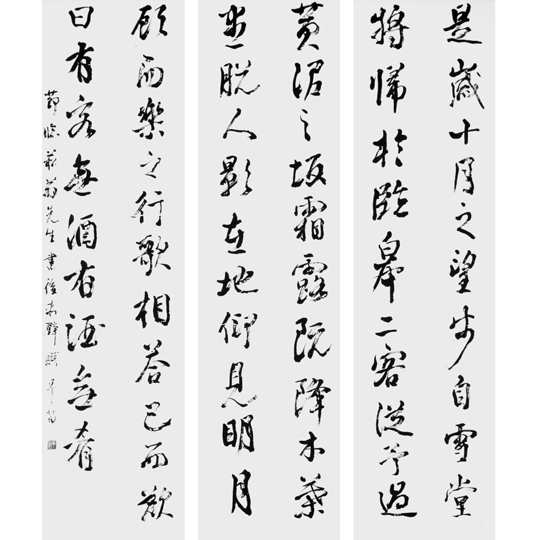 是歲十月之望步自雪堂
將歸於臨皋二客從予過
黃泥之坂霜露既降木葉
盡脫人影在地仰見明月
顧而樂之行歌相答已而歎
曰有客無酒有酒無肴
節臨翁先生書後赤壁賦